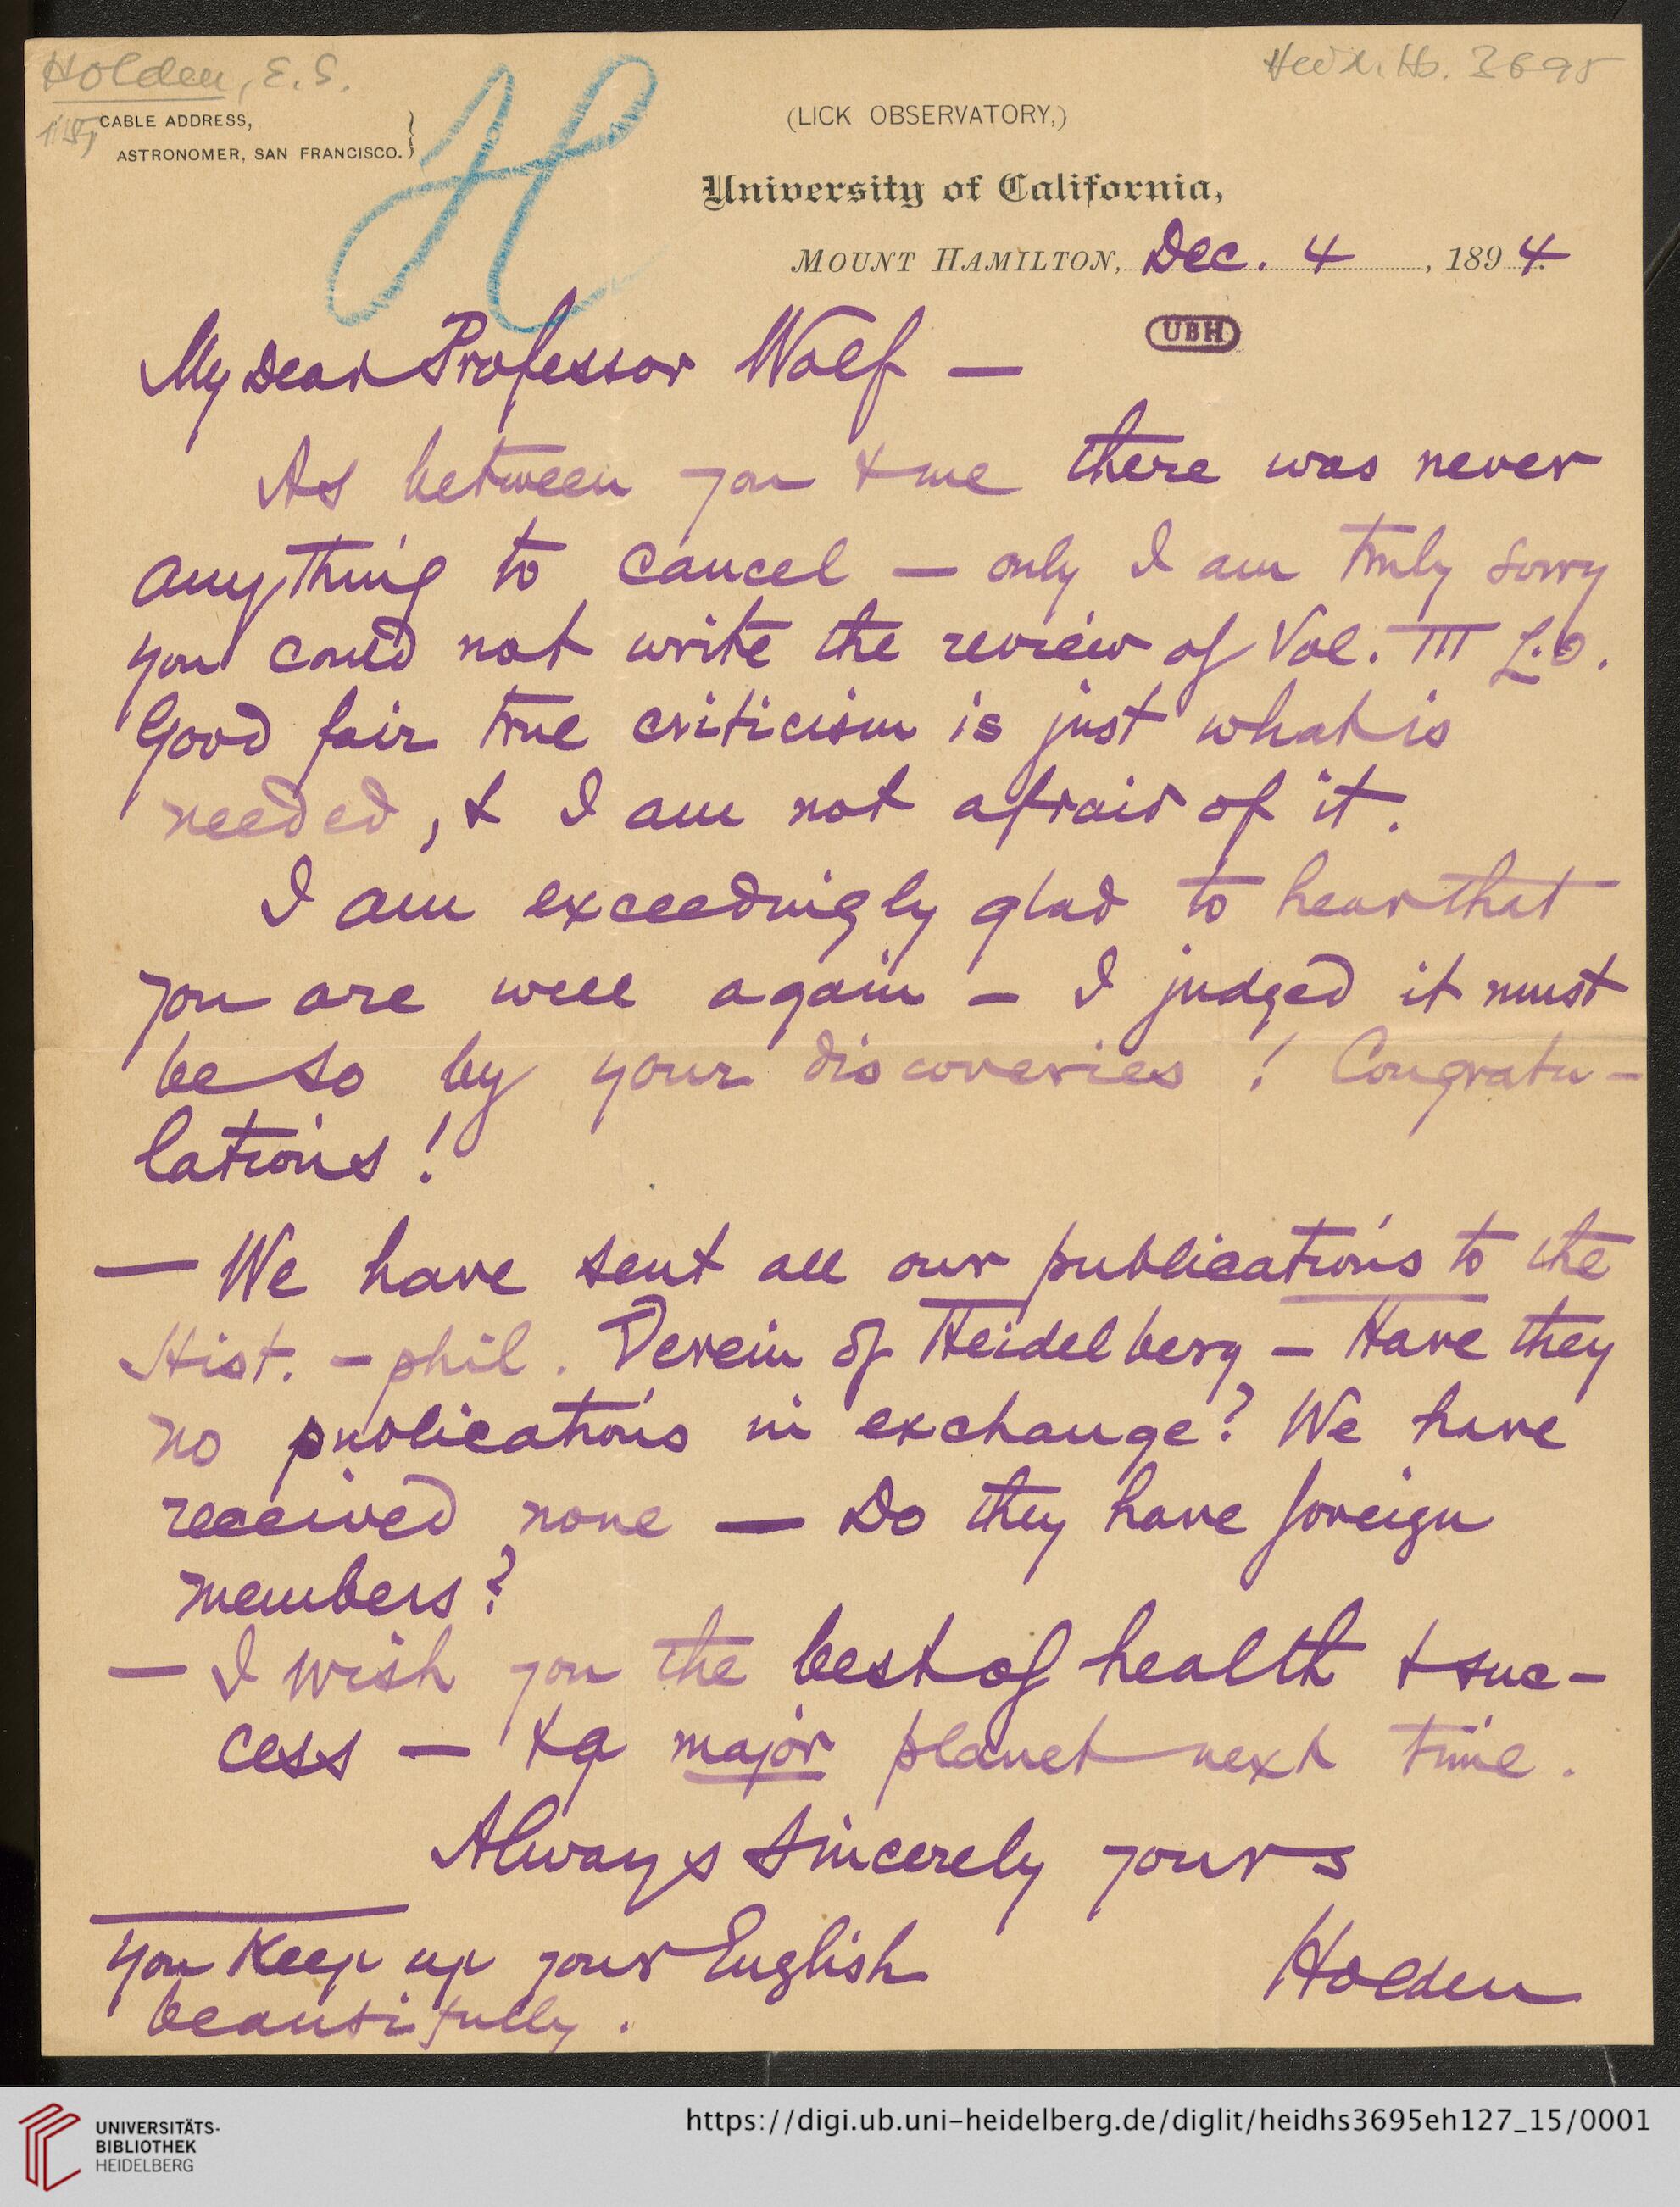 Holden, E. S.
Heid. Hs. 3695
CABLE ADDRESS,
ASTRONOMER, SAN FRANCISCO.
H
(LICK OBSERVATORY,)
University of California,
MOUNT HAMILTON, Dec. 4, 1894.
UBH
My dear Professor Wolf —
As between you & me there was never
anything to cancel — only I am truly sorry
you could not write the review of Vol. III L.O.
Good fair true criticism is just what is
needed, & I am not afraid of it.
I am exceedingly glad to hear that
you are well again — I judged it must
be so by your discoveries! Congratu-
lations!
— We have sent all our publications to the
Hist. - phil. Verein of Heidelberg — Have they
no publications in exchange? We have
received none — Do they have foreign
members?
— I wish you the best of health & suc-
cess — & a major planet next time.
Always sincerely yours
Holden
You keep up your English
beautifully.
UNIVERSITÄTS-
BIBLIOTHEK
HEIDELBERG
https://digi.ub.uni-heidelberg.de/diglit/heidhs3695eh127_15/0001